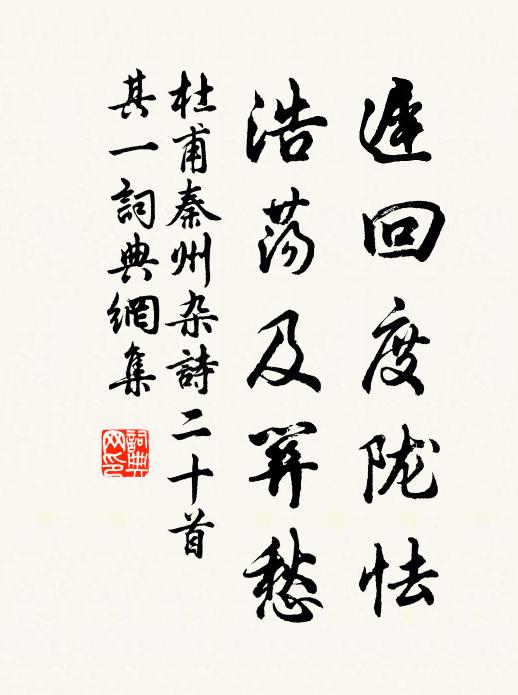 遲回度陇怯
浩荡及関愁
杜甫秦州杂詩二十首
其一詞典網集
詞典
网印